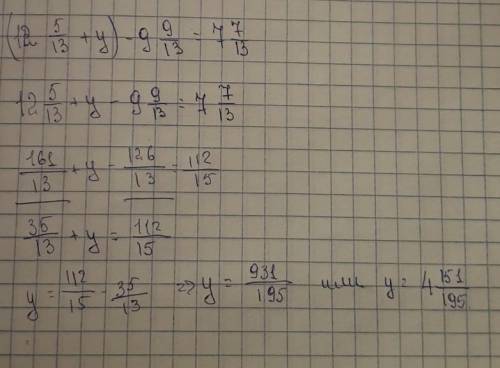 (12 5/13 + y) - 9 9/13 = 7 7/13
12 5/13 + y - 9 9/13 = 7 7/13
161/13 + y - 126/13 = 112/15
35/13 + y = 112/15
y = 112/15 - 35/13 => y = 931/195 или y = 4 151/195